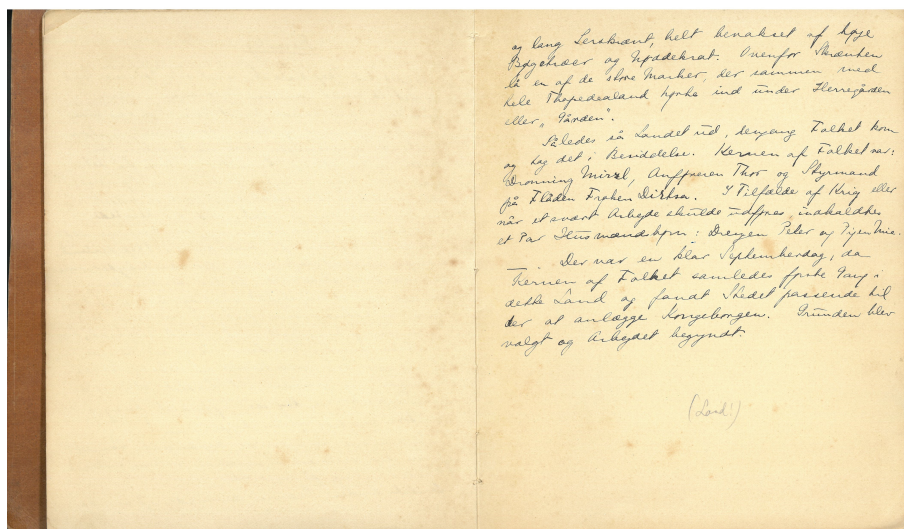 og lang Lerskrænt, helt bevokset af høje
Bøgetræer og Nøddekrat. Ovenfor Skrænten
lå en af de store Marker, der sammen med
hele Thopedealand hørte ind under Herregården
eller „Gården".
Således så Landet ud, dengang Folket kom
og tog det i Besiddelse. Kernen af Folket var:
Dronning Mirzl, Anføreren Thor og Styrmand
på Flåden Frøken Diktsa. I Tilfælde af Krig eller
når et svært Arbejde skulde udføres indkaldtes
et Par Husmandsbørn: Drengen Peter og Pigen Mie.
Der var en klar Septemberdag, da
Kernen af Folket samledes første Gang i
dette Land og fandt Stedet passende til
der at anlægge Kongeborgen. Grunden blev
valgt og Arbejdet begyndt.
(Land!)